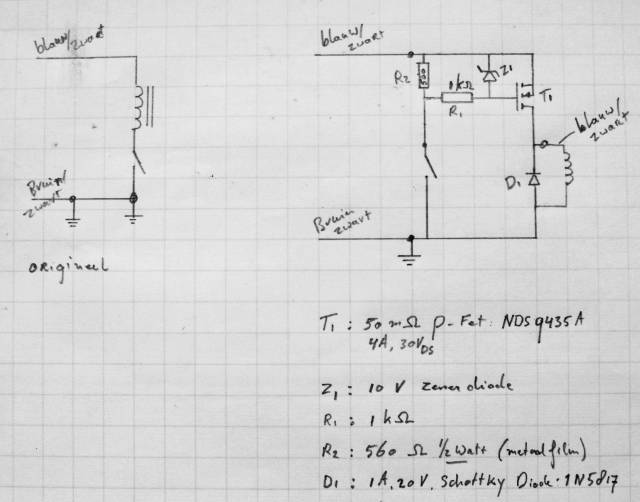 blauw/zwart
Bruin/
zwart
origineel
blauw/
zwart
R2
560
1kΩ
R1
Z1
T1
blauw/
zwart
D1
Bruin
zwart
T1 : 50 mΩ p-Fet: NDS9435A
4A, 30VDS
Z1 : 10 V zener diode
R1 : 1 kΩ
R2 : 560 Ω ½ Watt (metaalfilm)
D1 : 1A, 20V, Schottky Diode · 1N5817